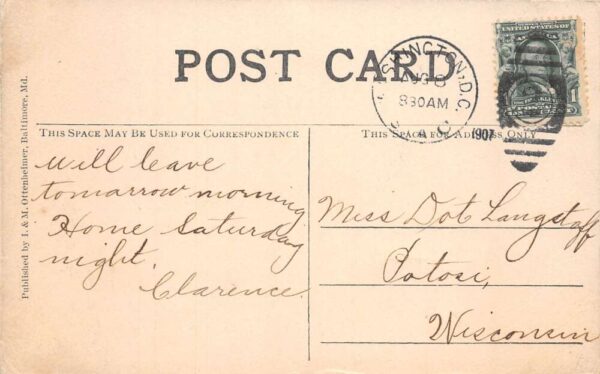 POST CARD
WASHINGTON, D.C.
AUG 8
830AM
1907
THIS SPACE MAY BE USED FOR CORRESPONDENCE
THIS SPACE FOR ADDRESS ONLY
Published by I. & M. Ottenheimer, Baltimore, Md.
Will leave
tomarrow morning
Home Saturday
night.
Clarence
Miss Dot Langstaff
Potosi,
Wisconsin